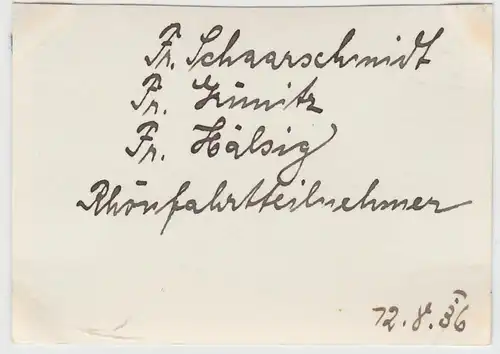 Fr. Schaarschmidt
Fr. Grünitz
Fr. Hälsig
Rhönfahrtteilnehmer
12.8.36